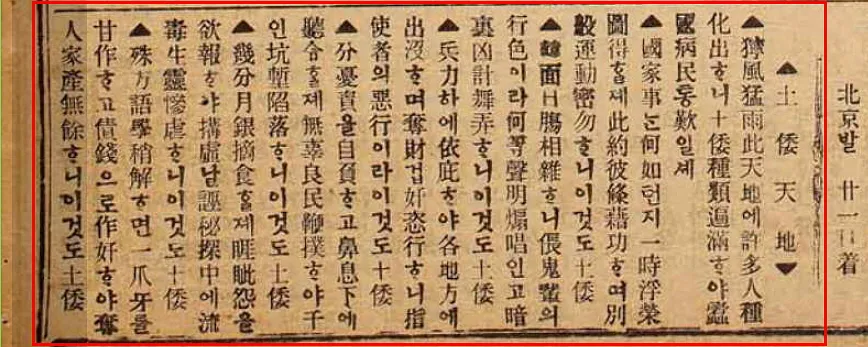 北京발 廿一日着
▲土倭天地▼
▲獰風猛雨此天地에許多人種
化出ᄒᆞ니土倭種類逼滿ᄒᆞ야蠹
國病民통歎일셰
▲國家事ᄂᆞᆫ何如턴지一時浮榮
圖得ᄒᆞᆯ졔此約彼條藉功ᄒᆞ며別
般運動密勿ᄒᆞ니이것도土倭
▲韓面日膓相雜ᄒᆞ니倀鬼輩의
行色이라何等聲明煽唱인고暗
裏凶計舞弄ᄒᆞ니이것도土倭
▲兵力하에依庇ᄒᆞ야各地方에
出沒ᄒᆞ며奪財겁奸恣行ᄒᆞ니指
使者의惡行이라이것도土倭
▲分憂責을自負ᄒᆞ고鼻息下에
聽令ᄒᆞᆯ졔無辜良民鞭撲ᄒᆞ야千
人坑塹陷落ᄒᆞ니이것도土倭
▲幾分月銀摘食ᄒᆞᆯ졔睚眦怨을
欲報ᄒᆞ야搆虛날誣秘探中에流
毒生靈慘虐ᄒᆞ니이것도土倭
▲殊方語學稍解ᄒᆞ면一爪牙를
甘作ᄒᆞ고債錢으로作奸ᄒᆞ야奪
人家產無餘ᄒᆞ니이것도土倭